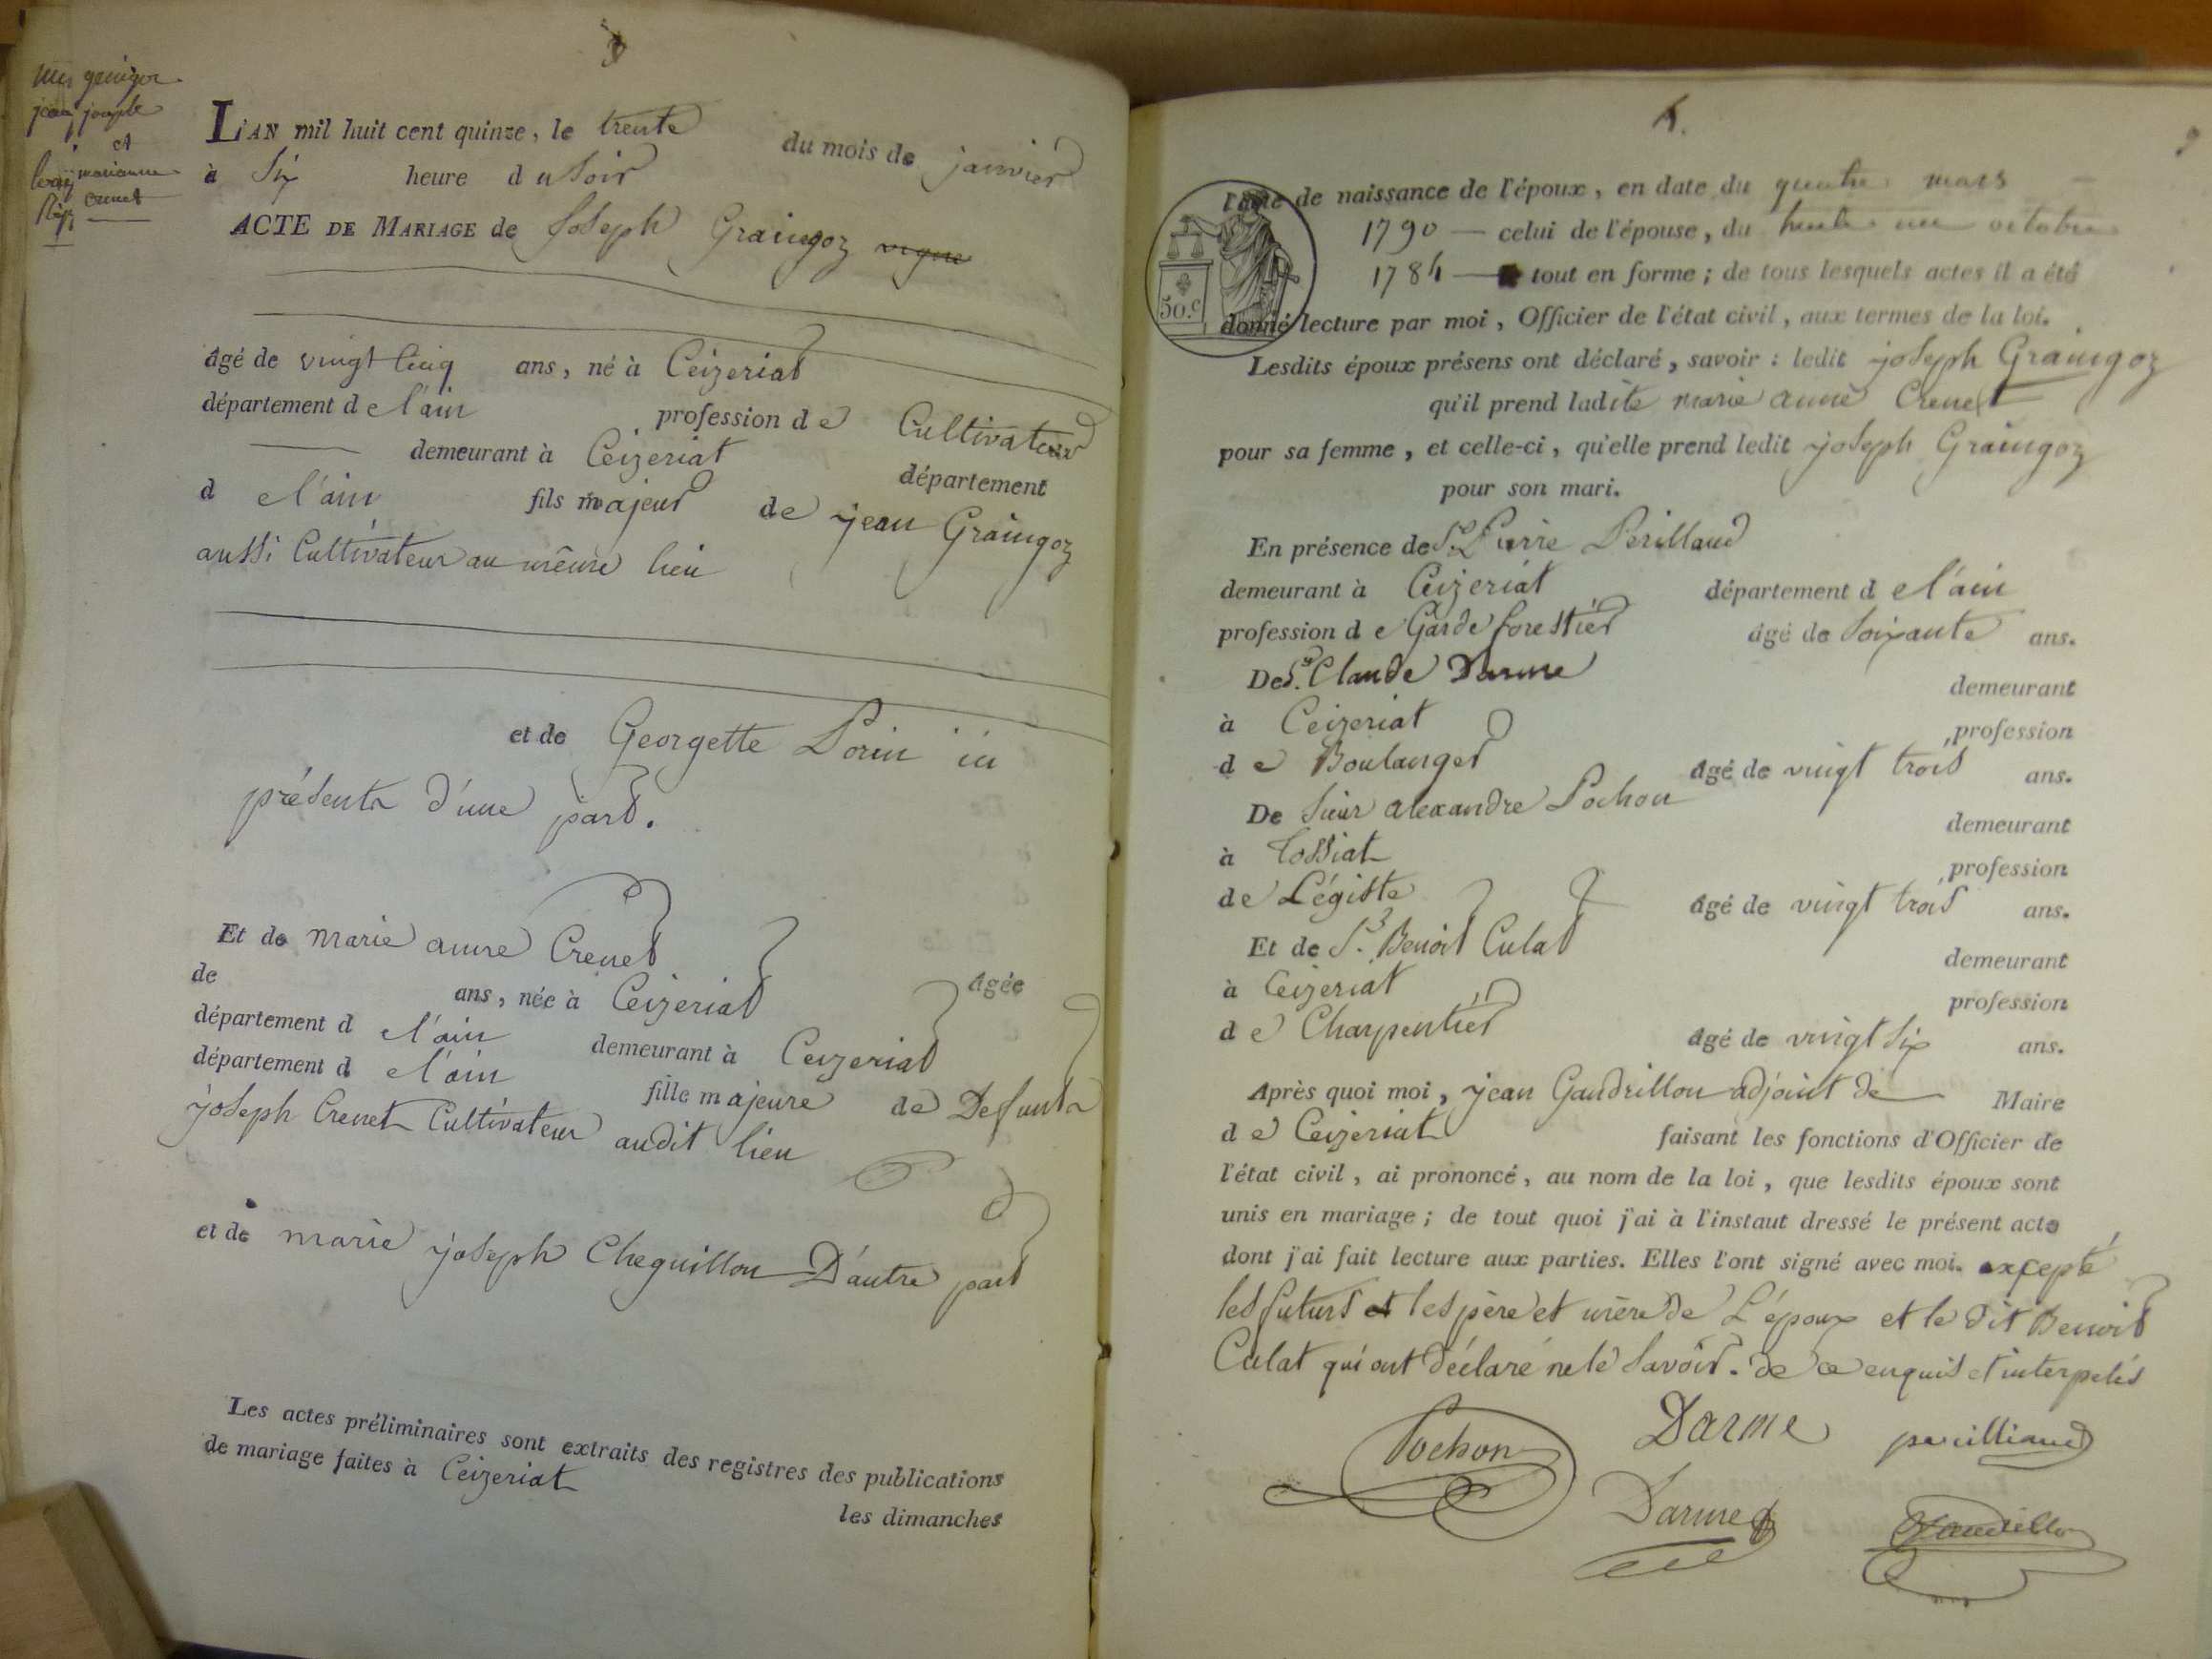 3
jean joseph
et
marianne
Crenet
L'AN mil huit cent quinze, le trente du mois de janvier
à Six heure du Soir
ACTE DE MARIAGE de Joseph Graingoz vigne
âgé de vingt Cinq ans, né à Ceizeriat
département de l'ain profession de Cultivateur
demeurant à Ceizeriat département
de l'ain fils majeur de jean Graingoz
aussi Cultivateur au même lieu
et de Georgette Porin ici
présents d'une part.
Et de marie anne Crenet âgée
de ans, née à Ceizeriat
département de l'ain demeurant à Ceyzeriat
département de l'ain fille majeure de Defunt
joseph Crenet Cultivateur audit lieu
et de marie joseph Cheguillon D'autre part
Les actes préliminaires sont extraits des registres des publications
de mariage faites à Ceizeriat les dimanches
l'acte de naissance de l'époux, en date du quatre mars
1790 — celui de l'épouse, du trente un octobre
1784 — tout en forme; de tous lesquels actes il a été
donné lecture par moi, Officier de l'état civil, aux termes de la loi.
50.c
Lesdits époux présens ont déclaré, savoir: ledit joseph Graingoz
qu'il prend ladite marie anne Crenet
pour sa femme, et celle-ci, qu'elle prend ledit joseph Graingoz
pour son mari.
En présence de Sr. Pierre Perillaud
demeurant à Ceizeriat département de l'ain
profession de Garde forestier âgé de Soixante ans.
De Sr. Claude Darme demeurant
à Ceizeriat profession
de Boulanger âgé de vingt trois ans.
De Sieur alexandre Pochon demeurant
à Tossiat profession
de Légiste âgé de vingt trois ans.
Et de Sr. Benoit Culat demeurant
à Ceizeriat profession
de Charpentier âgé de vingt Six ans.
Après quoi moi, jean Gaudrillon adjoint de Maire
de Ceizeriat faisant les fonctions d'Officier de
l'état civil, ai prononcé, au nom de la loi, que lesdits époux sont
unis en mariage; de tout quoi j'ai à l'instaut dressé le présent acte
dont j'ai fait lecture aux parties. Elles l'ont signé avec moi. excepté
les futurs et les père et mère de L'époux et le dit Benoit
Culat qui ont déclaré ne le Savoir. de ce enquis et interpelés
Pochon Darme perilliaud
Darme Gaudrillon